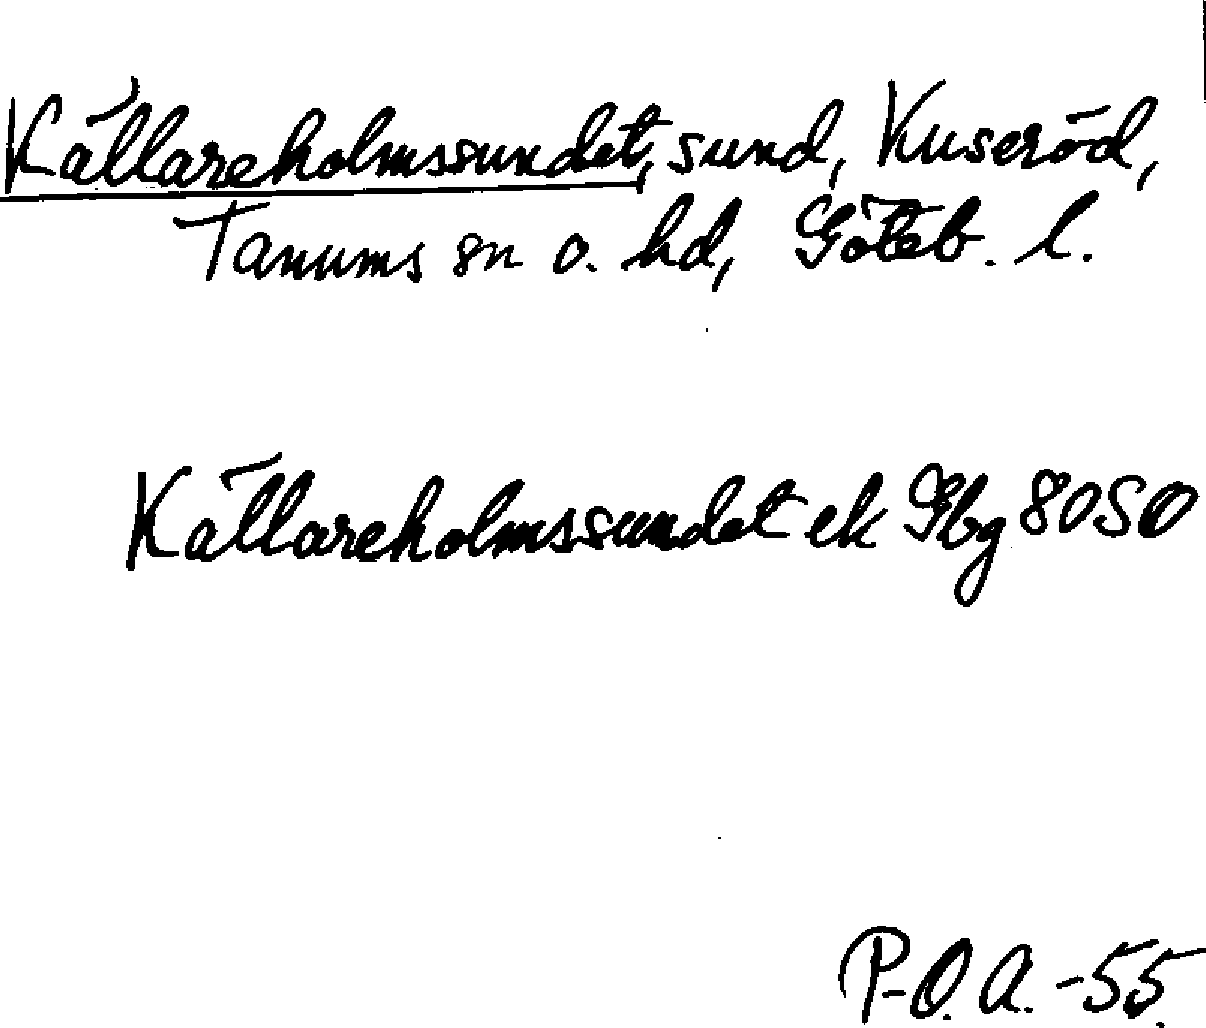 Källareholmssundet, sund, Kuseröd,
Tanums sn o. hd, Göteb. l.
Källareholmssundet ek Gbg 8050
P-O. A. -55.